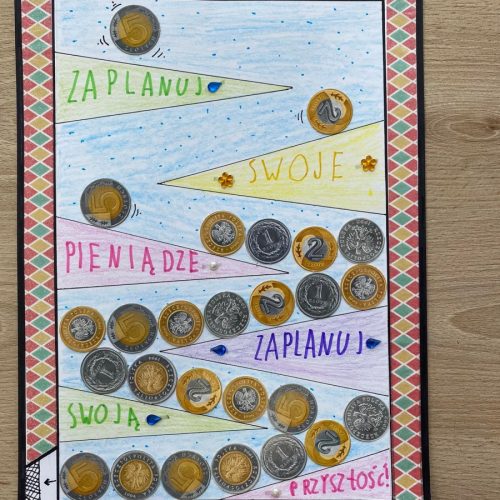 ZAPLANUJ
SWOJE
PIENIĄDZE
ZAPLANUJ
SWOJĄ
PRZYSZŁOŚĆ!